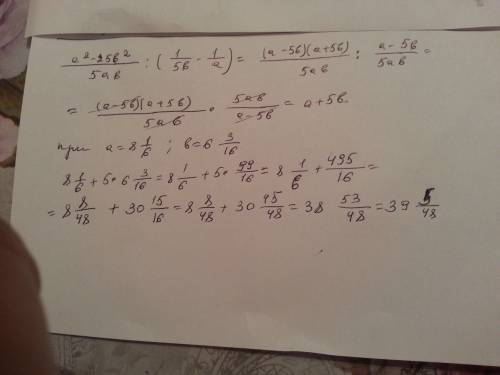 (a²-25b²)/(5ab) : (1/(5b) - 1/a) = ((a-5b)(a+5b))/(5ab) : (a-5b)/(5ab) =
= ((a-5b)(a+5b))/(5ab) · (5ab)/(a-5b) = a+5b.
при a=8 1/6 ; b=6 3/16
8 1/6 + 5·6 3/16 = 8 1/6 + 5·99/16 = 8 1/6 + 495/16 =
= 8 8/48 + 30 15/16 = 8 8/48 + 30 45/48 = 38 53/48 = 39 5/48